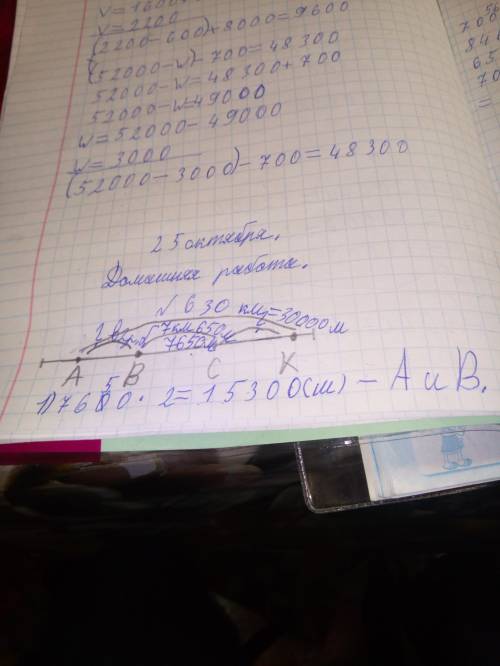 (2200-600)+8000=9600
(52000-w)-700=48300
52000-w=48300+700
52000-w=49000
w=52000-49000
w=3000
(52000-3000)-700=48300
25 октября.
Домашняя работа.
630 км=30000м
7км 650м
7650м
A B C K
1)7650·2=15300(м)-A и B.